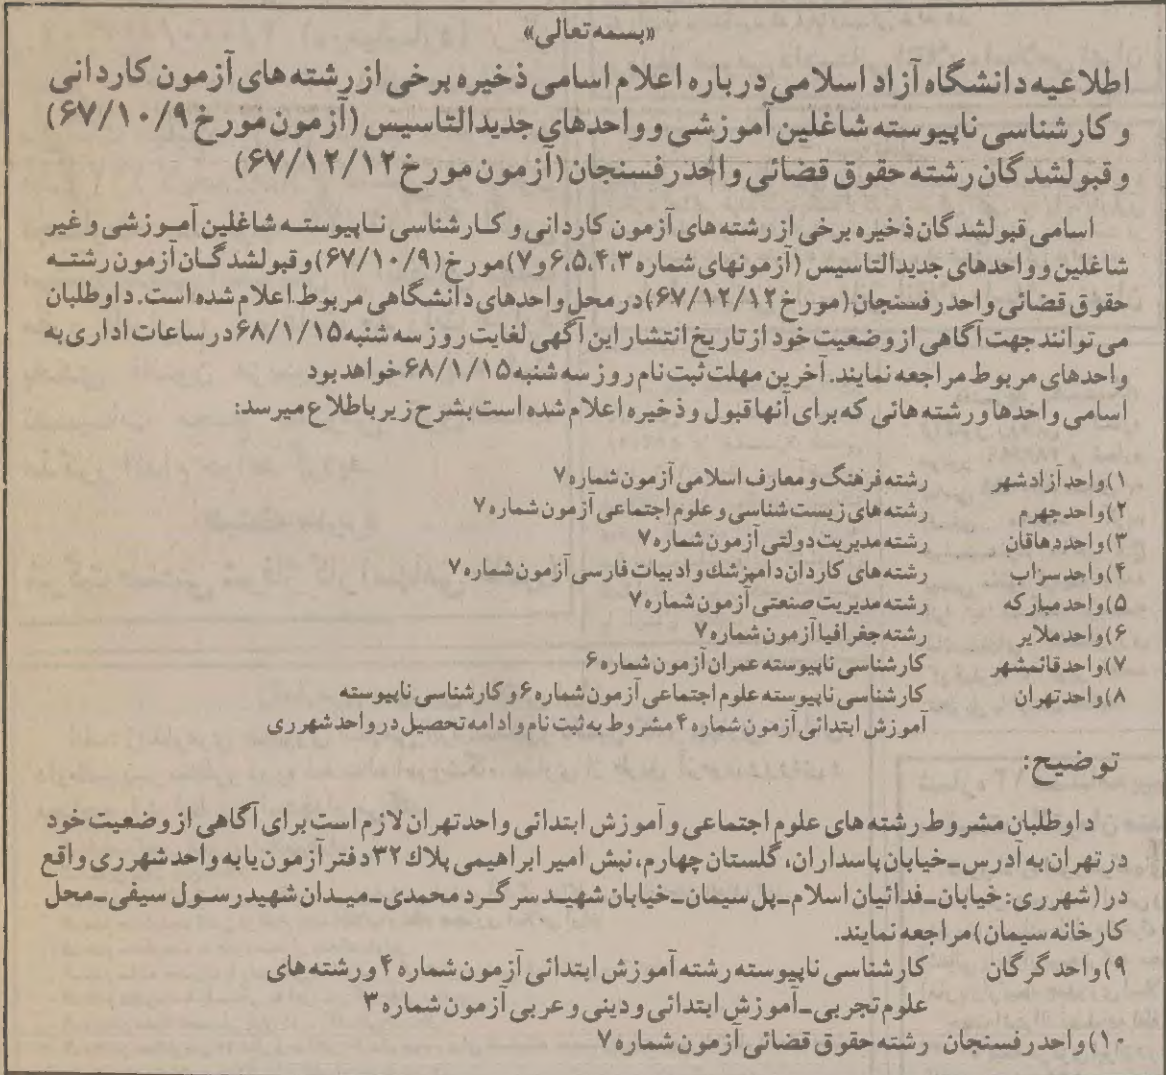 «بسمه تعالی»
اطلاعیه دانشگاه آزاد اسلامی درباره اعلام اسامی ذخیره برخی از رشته های آزمون کاردانی
و کارشناسی ناپیوسته شاغلین آموزشی و واحدهای جدیدالتاسیس (آزمون مورخ ۶۷/۱۰/۹)
و قبولشدگان رشته حقوق قضائی واحد رفسنجان (آزمون مورخ ۶۷/۱۲/۱۲)
اسامی قبولشدگان ذخیره برخی از رشته های آزمون کاردانی و کارشناسی ناپیوسته شاغلین آموزشی و غیر
شاغلین و واحدهای جدیدالتاسیس (آزمونهای شماره ۶،۵،۴،۳ و ۷) مورخ (۶۷/۱۰/۹) و قبولشدگان آزمون رشته
حقوق قضائی واحد رفسنجان (مورخ ۶۷/۱۲/۱۲) در محل واحدهای دانشگاهی مربوط اعلام شده است. داوطلبان
می توانند جهت آگاهی از وضعیت خود از تاریخ انتشار این آگهی لغایت روز سه شنبه ۶۸/۱/۱۵ در ساعات اداری به
واحدهای مربوط مراجعه نمایند. آخرین مهلت ثبت نام روز سه شنبه ۶۸/۱/۱۵ خواهد بود
اسامی واحدها و رشته هائی که برای آنها قبول و ذخیره اعلام شده است بشرح زیر باطلاع میرسد:
۱) واحد آزادشهر رشته فرهنگ و معارف اسلامی آزمون شماره ۷
۲) واحد جهرم رشته های زیست شناسی و علوم اجتماعی آزمون شماره ۷
۳) واحد دهاقان رشته مدیریت دولتی آزمون شماره ۷
۴) واحد سراب رشته های کاردان دامپزشك و ادبیات فارسی آزمون شماره ۷
۵) واحد مبارکه رشته مدیریت صنعتی آزمون شماره ۷
۶) واحد ملایر رشته جغرافیا آزمون شماره ۷
۷) واحد قائمشهر کارشناسی ناپیوسته عمران آزمون شماره ۶
۸) واحد تهران کارشناسی ناپیوسته علوم اجتماعی آزمون شماره ۶ و کارشناسی ناپیوسته
آموزش ابتدائی آزمون شماره ۴ مشروط به ثبت نام و ادامه تحصیل در واحد شهر ری
توضیح:
داوطلبان مشروط رشته های علوم اجتماعی و آموزش ابتدائی واحد تهران لازم است برای آگاهی از وضعیت خود
در تهران به آدرس ـ خیابان پاسداران، گلستان چهارم، نبش امیر ابراهیمی پلاك ۳۲ دفتر آزمون یا به واحد شهر ری واقع
در (شهر ری: خیابان ـ فدائیان اسلام ـ پل سیمان ـ خیابان شهید سرگرد محمدی ـ میدان شهید رسول سیفی ـ محل
کارخانه سیمان) مراجعه نمایند.
۹) واحد گرگان کارشناسی ناپیوسته رشته آموزش ابتدائی آزمون شماره ۴ و رشته های
علوم تجربی ـ آموزش ابتدائی و دینی و عربی آزمون شماره ۳
۱۰) واحد رفسنجان رشته حقوق قضائی آزمون شماره ۷